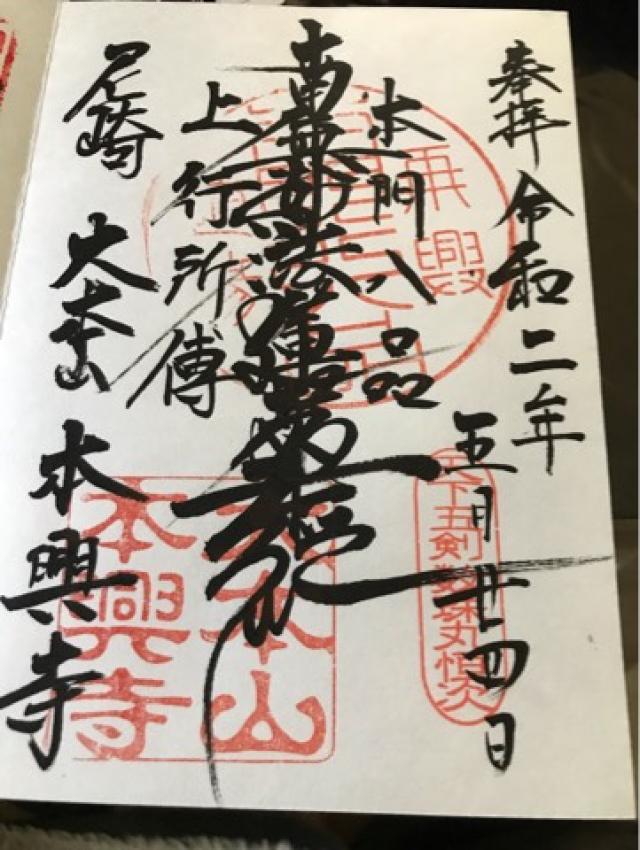 奉拝 令和二年
五月廿四日
天下五剣数珠丸恒次
本門八品
南無妙法蓮華經
上行所傳
大本山
本興寺
尼崎 大本山 本興寺